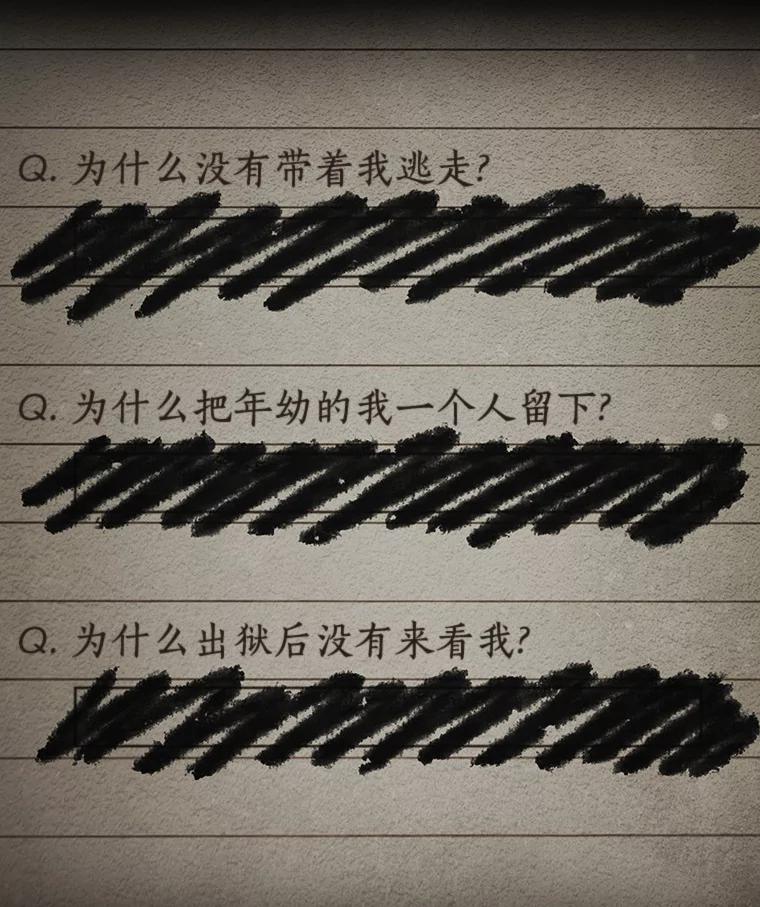 Q. 为什么没有带着我逃走?
Q. 为什么把年幼的我一个人留下?
Q. 为什么出狱后没有来看我?